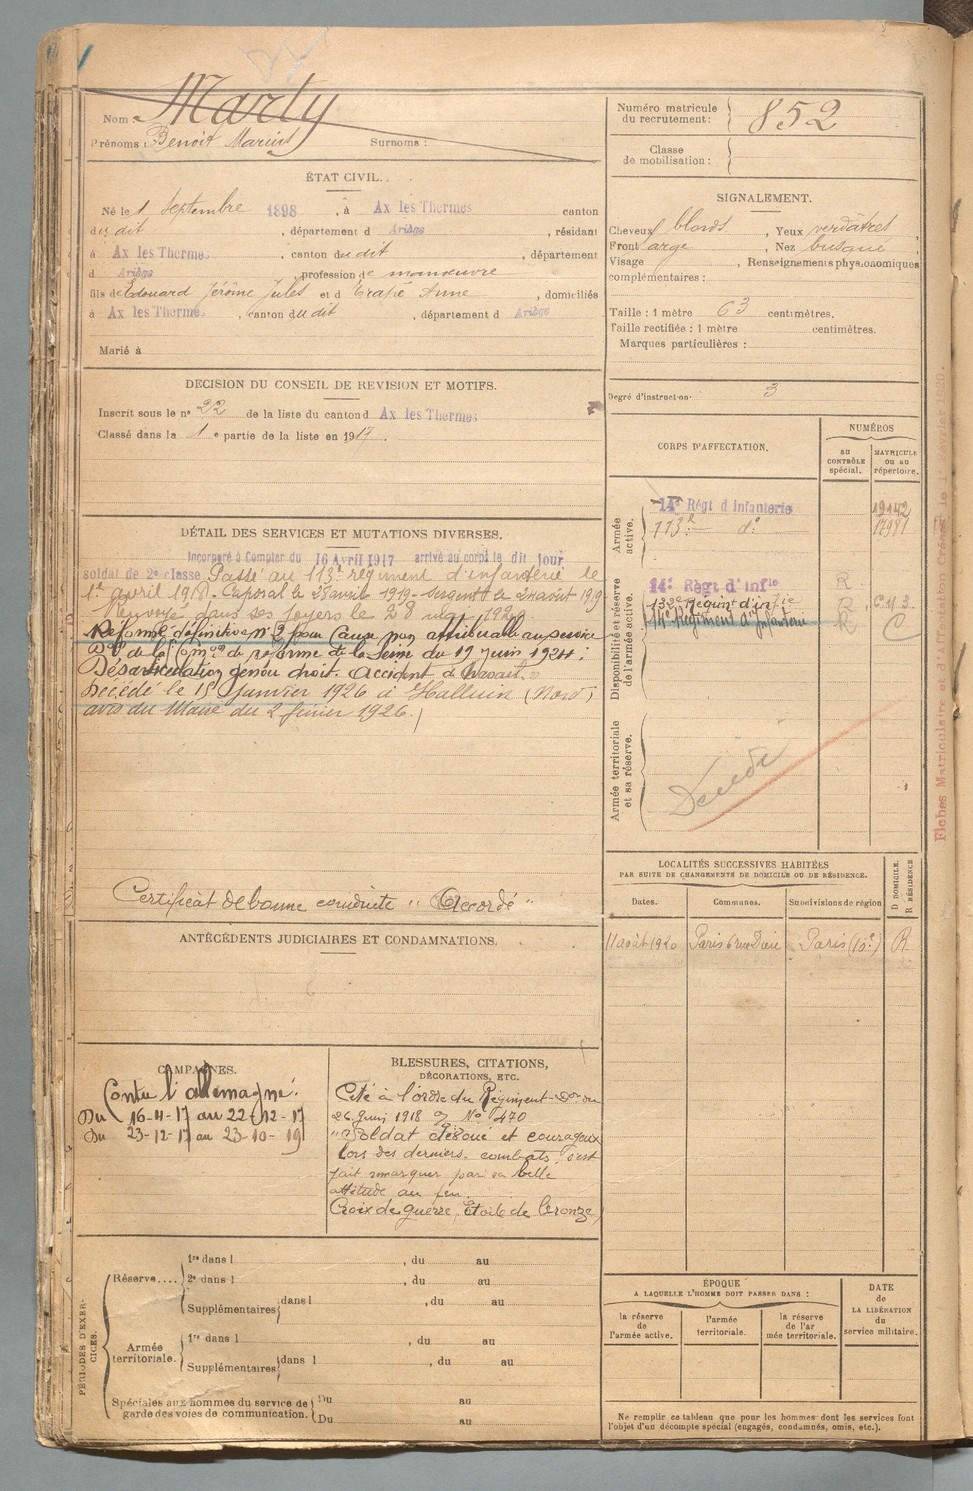 Nom : Marty
Prénoms : Benoit Marius Surnoms :
ÉTAT CIVIL.
Né le 1 Septembre 1898, à Ax les Thermes canton
du dit, département d Ariège, résidant
à Ax les Thermes, canton du dit, département
d Ariège, profession de manœuvre
fils de Edouard Jérôme Jules et d Anne, domiciliés
à Ax les Thermes, canton du dit, département d Ariège
Marié à
DECISION DU CONSEIL DE REVISION ET MOTIFS.
Inscrit sous le n° 22 de la liste du canton d Ax les Thermes
Classé dans la 1e partie de la liste en 1917.
DÉTAIL DES SERVICES ET MUTATIONS DIVERSES.
Incorporé à Compter du 16 Avril 1917 arrivé au corps le dit jour
soldat de 2e classe Passé au 113e régiment d'infanterie le
1er avril 1918. Caporal le 25 avril 1919 - Sergent le 24 août 1919
Renvoyé dans ses foyers le 28 mai 1920
Réformé définitive n° 2 pour Cause non attribuable au service
Don de la Comon de réforme de la Seine du 19 Juin 1924 :
Désarticulation genou droit. Accident de travail.
Décédé le 15 Janvier 1926 à Halluin (Nord)
avis du Maire du 2 février 1926.
Certificat de bonne conduite "Accordé"
ANTÉCÉDENTS JUDICIAIRES ET CONDAMNATIONS.
CAMPAGNES.
Contre l'allemagne.
Du 16-4-17 au 22-12-17
Du 23-12-17 au 23-10-19
BLESSURES, CITATIONS,
DÉCORATIONS, ETC.
Cité à l'ordre du Régiment du
26 Juin 1918 No 470
"Soldat dévoué et courageux
lors des derniers combats s'est
fait remarquer par sa belle
attitude au feu.
Croix de guerre, Etoile de bronze
PÉRIODES D'EXERCICES.
Réserve.... 1re dans l , du au
2e dans l , du au
Supplémentaires dans l , du au
Armée territoriale. 1re dans l , du au
Supplémentaires dans l , du au
Spéciales aux hommes du service de garde des voies de communication. Du au
Du au
Numéro matricule du recrutement : 852
Classe de mobilisation :
SIGNALEMENT.
Cheveux blonds, Yeux verdâtres,
Front large, Nez busqué,
Visage , Renseignements physionomiques
complémentaires :
Taille : 1 mètre 63 centimètres.
Taille rectifiée : 1 mètre centimètres.
Marques particulières :
Degré d'instruction 3
CORPS D'AFFECTATION.
NUMÉROS
AU CONTRÔLE spécial.
MATRICULE OU AU répertoire.
Armée active.
14e Régt d'Infanterie 19142
113e do
Disponibilité et réserve de l'armée active.
14e Régt d'Infie R
132e Régiment d'infie R
14e Régiment d'Infanterie R C
Armée territoriale et sa réserve.
Décédé
LOCALITÉS SUCCESSIVES HABITÉES
PAR SUITE DE CHANGEMENTS DE DOMICILE OU DE RÉSIDENCE.
Dates. Communes. Subdivisions de région D DOMICILE. R RÉSIDENCE
11 août 1920 Paris 6 rue Dieu Paris (10e) R
ÉPOQUE
A LAQUELLE L'HOMME DOIT PASSER DANS :
la réserve de l'armée active.
l'armée territoriale.
la réserve de l'armée territoriale.
DATE de LA LIBÉRATION du service militaire.
Ne remplir ce tableau que pour les hommes dont les services font
l'objet d'un décompte spécial (engagés, condamnés, omis, etc.).
Fiches Matriculaire et d'Affectation Créées le 1er Février 1920.